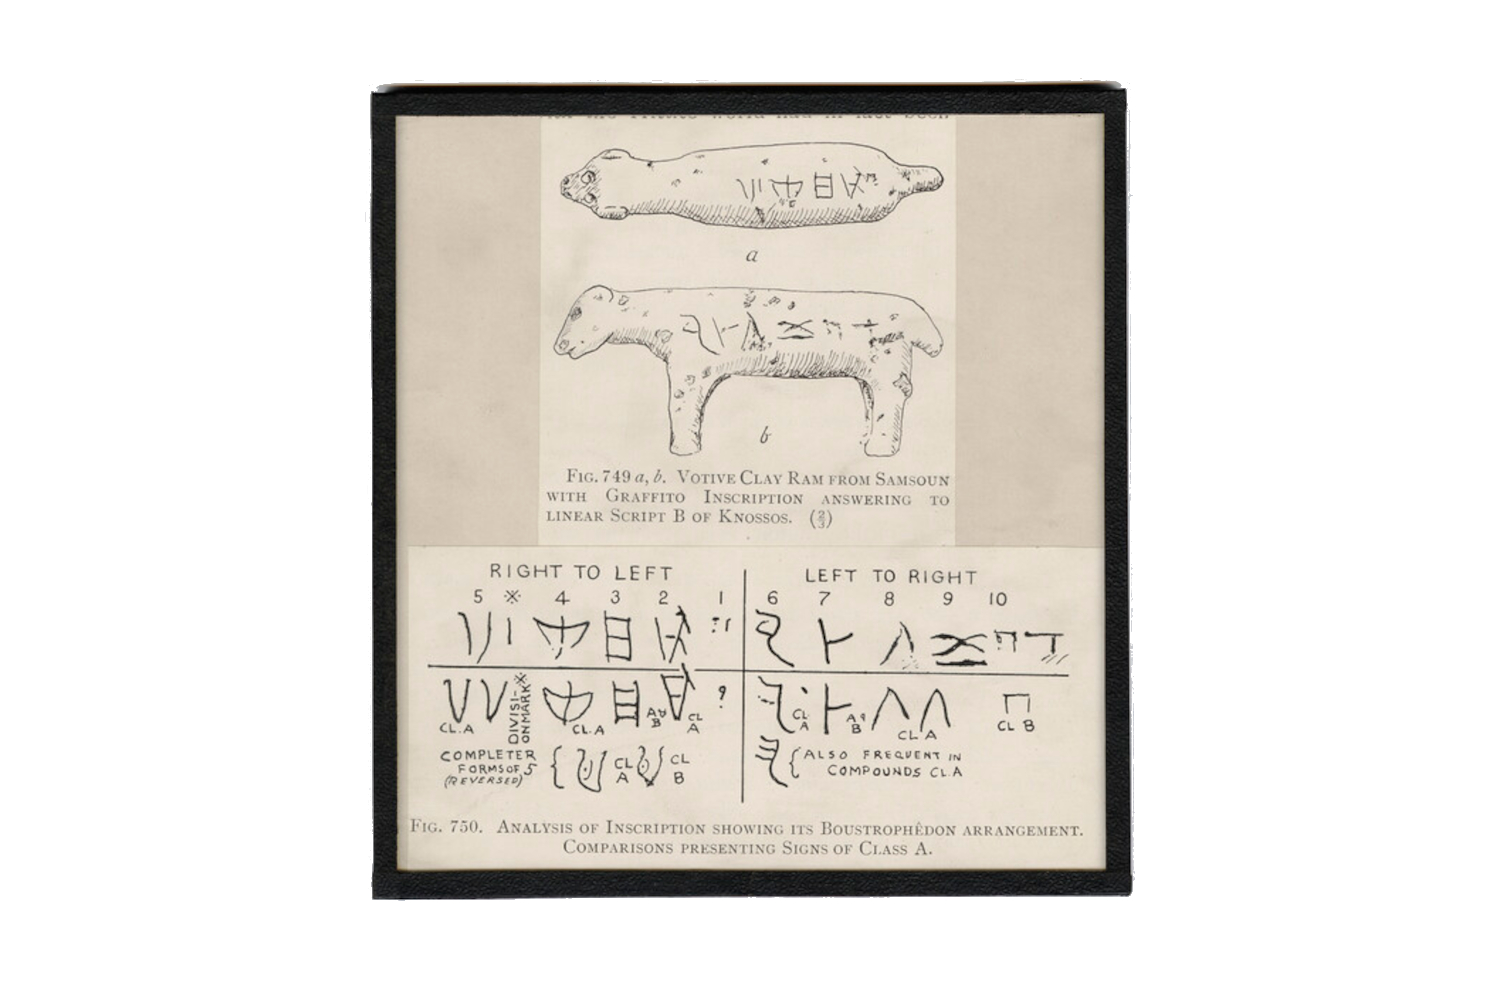 a
b
FIG. 749 a, b. VOTIVE CLAY RAM FROM SAMSOUN
WITH GRAFFITO INSCRIPTION ANSWERING TO
LINEAR SCRIPT B OF KNOSSOS. (2/3)
RIGHT TO LEFT
5 ※ 4 3 2 1
CL.A
DIVISI-
ONMARK※
CL.A
A &
B
CL
A
?
COMPLETER
FORMS OF 5
(REVERSED)
CL
A
CL
B
LEFT TO RIGHT
6 7 8 9 10
CL
A
A &
B
CL A
CL B
ALSO FREQUENT IN
COMPOUNDS CL.A
FIG. 750. ANALYSIS OF INSCRIPTION SHOWING ITS BOUSTROPHÊDON ARRANGEMENT.
COMPARISONS PRESENTING SIGNS OF CLASS A.